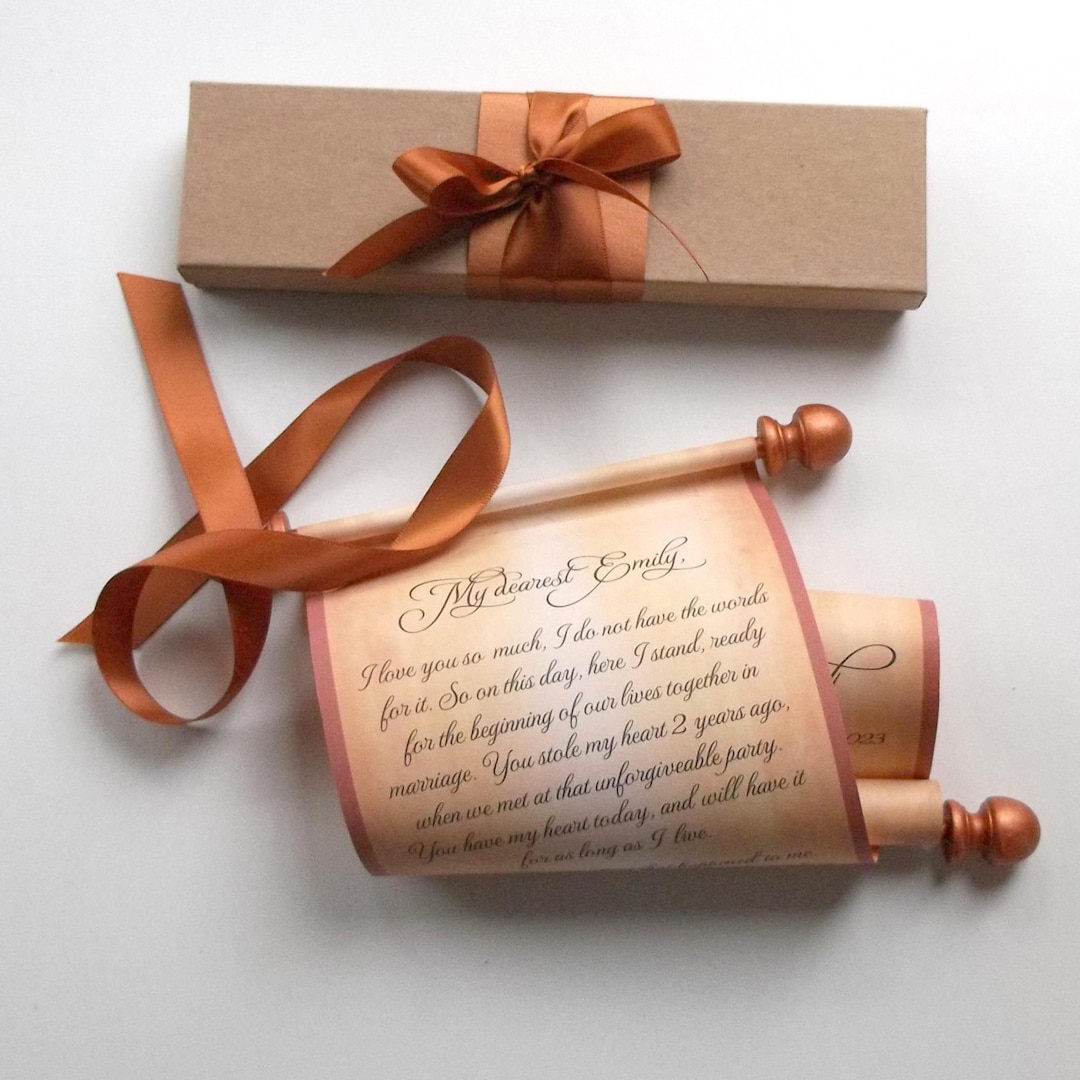 My dearest Emily,
I love you so much, I do not have the words
for it. So on this day, here I stand, ready
for the beginning of our lives together in
marriage. You stole my heart 2 years ago,
when we met at that unforgiveable party.
You have my heart today, and will have it
for as long as I live.
happened to me
023